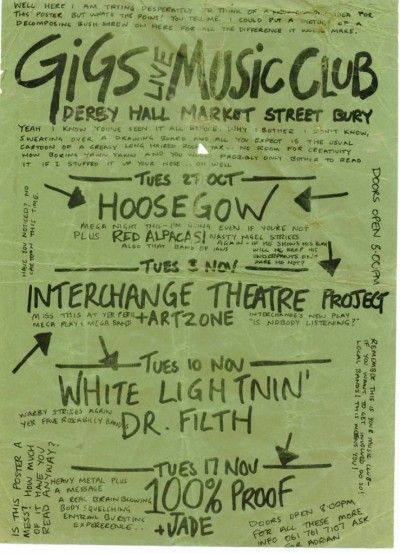 WELL HERE I AM TRYING DESPERATELY TO THINK OF A FOR
THIS POSTER BUT WHAT'S THE POINT! YOU TELL ME. I COULD PUT A PICTURE OF A
DECOMPOSING BUSH SHREW ON HERE FOR ALL THE DIFFERENCE IT WOULD MAKE.
GIGS LIVE MUSIC CLUB
DERBY HALL MARKET STREET BURY
YEAH I KNOW YOU'VE SEEN IT ALL BEFORE. WHY I BOTHER I DON'T KNOW,
SWEATING OVER A DRAWING BOARD AND ALL YOU EXPECT IS THE USUAL
CARTOON OF A GREASY LONG HAIRED ROCK STAR - NO ROOM FOR CREATIVITY
HOW BORING YAWN YAWN AND YOU WOULD PROBIBLY ONLY BOTHER TO READ
IT IF I STUFFED IT UP YOUR NOSE. OH WELL
TUES 27 OCT
HOOSEGOW
MEGA NIGHT THIS - I'M GONNA EVEN IF YOU'RE NOT
PLUS RED ALPACAS! NASTY NIGEL STRIKES
AGAIN - IF HE SHOWS HIS BUM
ALSO THAT BAND OF HIS WILL HE KEEP HIS
UNDERPANTS ON?
DARE HE NOT?
HAVE YOU NOTICED? NO
THIS TIME.
DOORS OPEN 8:00PM
TUES 3 NOV
INTERCHANGE THEATRE PROJECT
MISS THIS AT YER PERIL + ARTZONE INTERCHANGE'S NEW PLAY
MEGA PLAY! MEGA BAND "IS NOBODY LISTENING?"
TUES 10 NOV
WHITE LIGHTNIN'
WARBY STRIKES AGAIN
YER FAVE ROCKABILLY BAND
DR. FILTH
REMEMBER THIS IS YOUR MUSIC CLUB -
IF YOU WANT TO GET INVOLVED DO SO!
LOCAL BANDS! THIS MEANS YOU!
TUES 17 NOV
HEAVY METAL PLUS
A MESSAGE
A REAL BRAIN BLOWING
BODY SQUELCHING
ENTRAIL BURSTING
EXPERIENCE.
100% PROOF
+ JADE
IS THIS POSTER A
MESS? HOW MUCH
OF IT HAVE YOU
READ ANYWAY?
DOORS OPEN 8:00PM
FOR ALL THESE MORE
INFO 061 761 7107 ASK
FOR ADRIAN